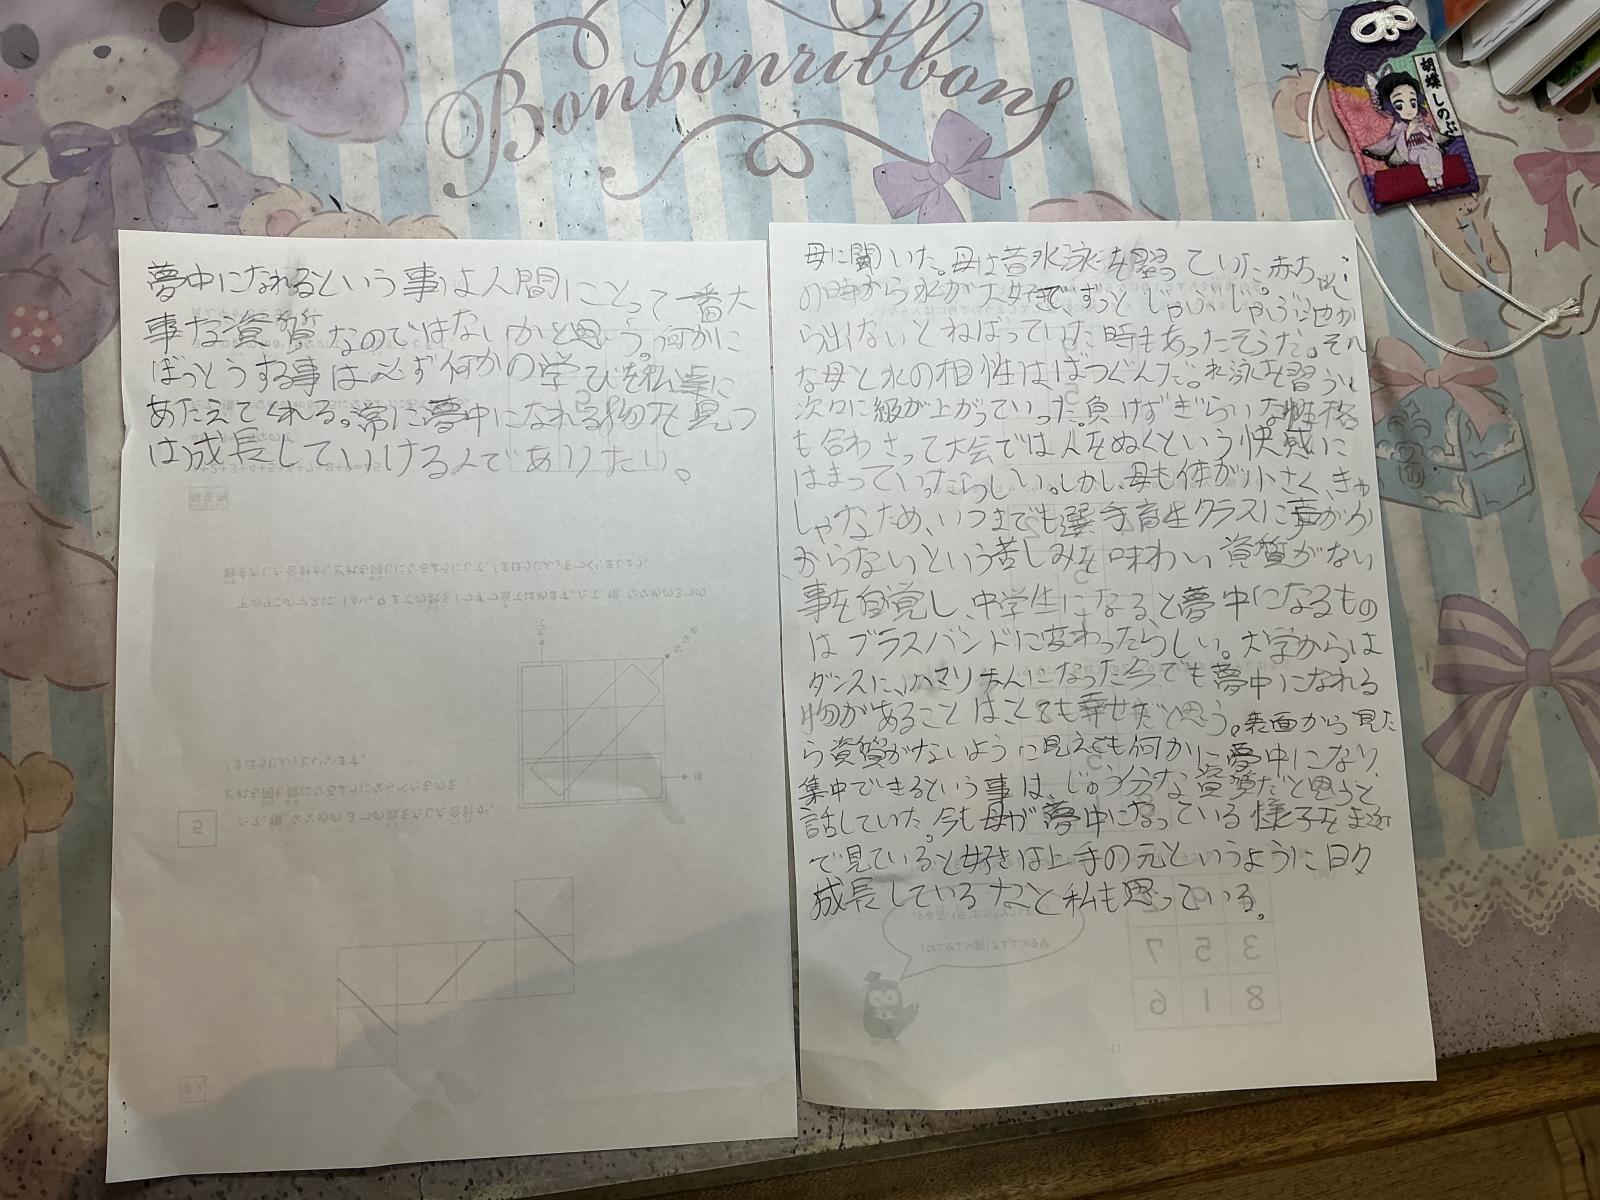 Bonbonribbons
胡蝶しのぶ
母に聞いた。母は昔水泳を習っていた。赤ちゃん
の時から水が大好きでずっとじゃぶじゃぶ池か
ら出ないとねばっていた時もあったそうだ。そん
な母と水の相性はばつぐんだ。水泳を習うと
次々に級が上がっていった。負けずぎらいな性格
も合わさって大会では人をぬくという快感に
はまっていったらしい。しかし、母も体が小さく、きゃ
しゃなため、いつまでも選手育生クラスに声がか
からないという苦しみを味わい資質がない
事を自覚し、中学生になると夢中になるもの
はブラスバンドに変わったらしい。大学からは
ダンスに、はまり大人になった今でも夢中になれる
物があることは、とても幸せだと思う。表面から見た
ら資質がないように見えても何かに夢中になり、
集中できるという事は、じゅう分な資質だと思うと
話していた。今も母が夢中になっている様子をま近
で見ていると好きは上手の元というように日々
成長しているなと私も思っている。
夢中になれるという事は人間にとって一番大
事な資質なのではないかと思う。何かに
ぼっとうする事は必ず何かの学びを私達に
あたえてくれる。常に夢中になれる物を見つ
け成長していける人でありたい。
3 5 7
8 1 6